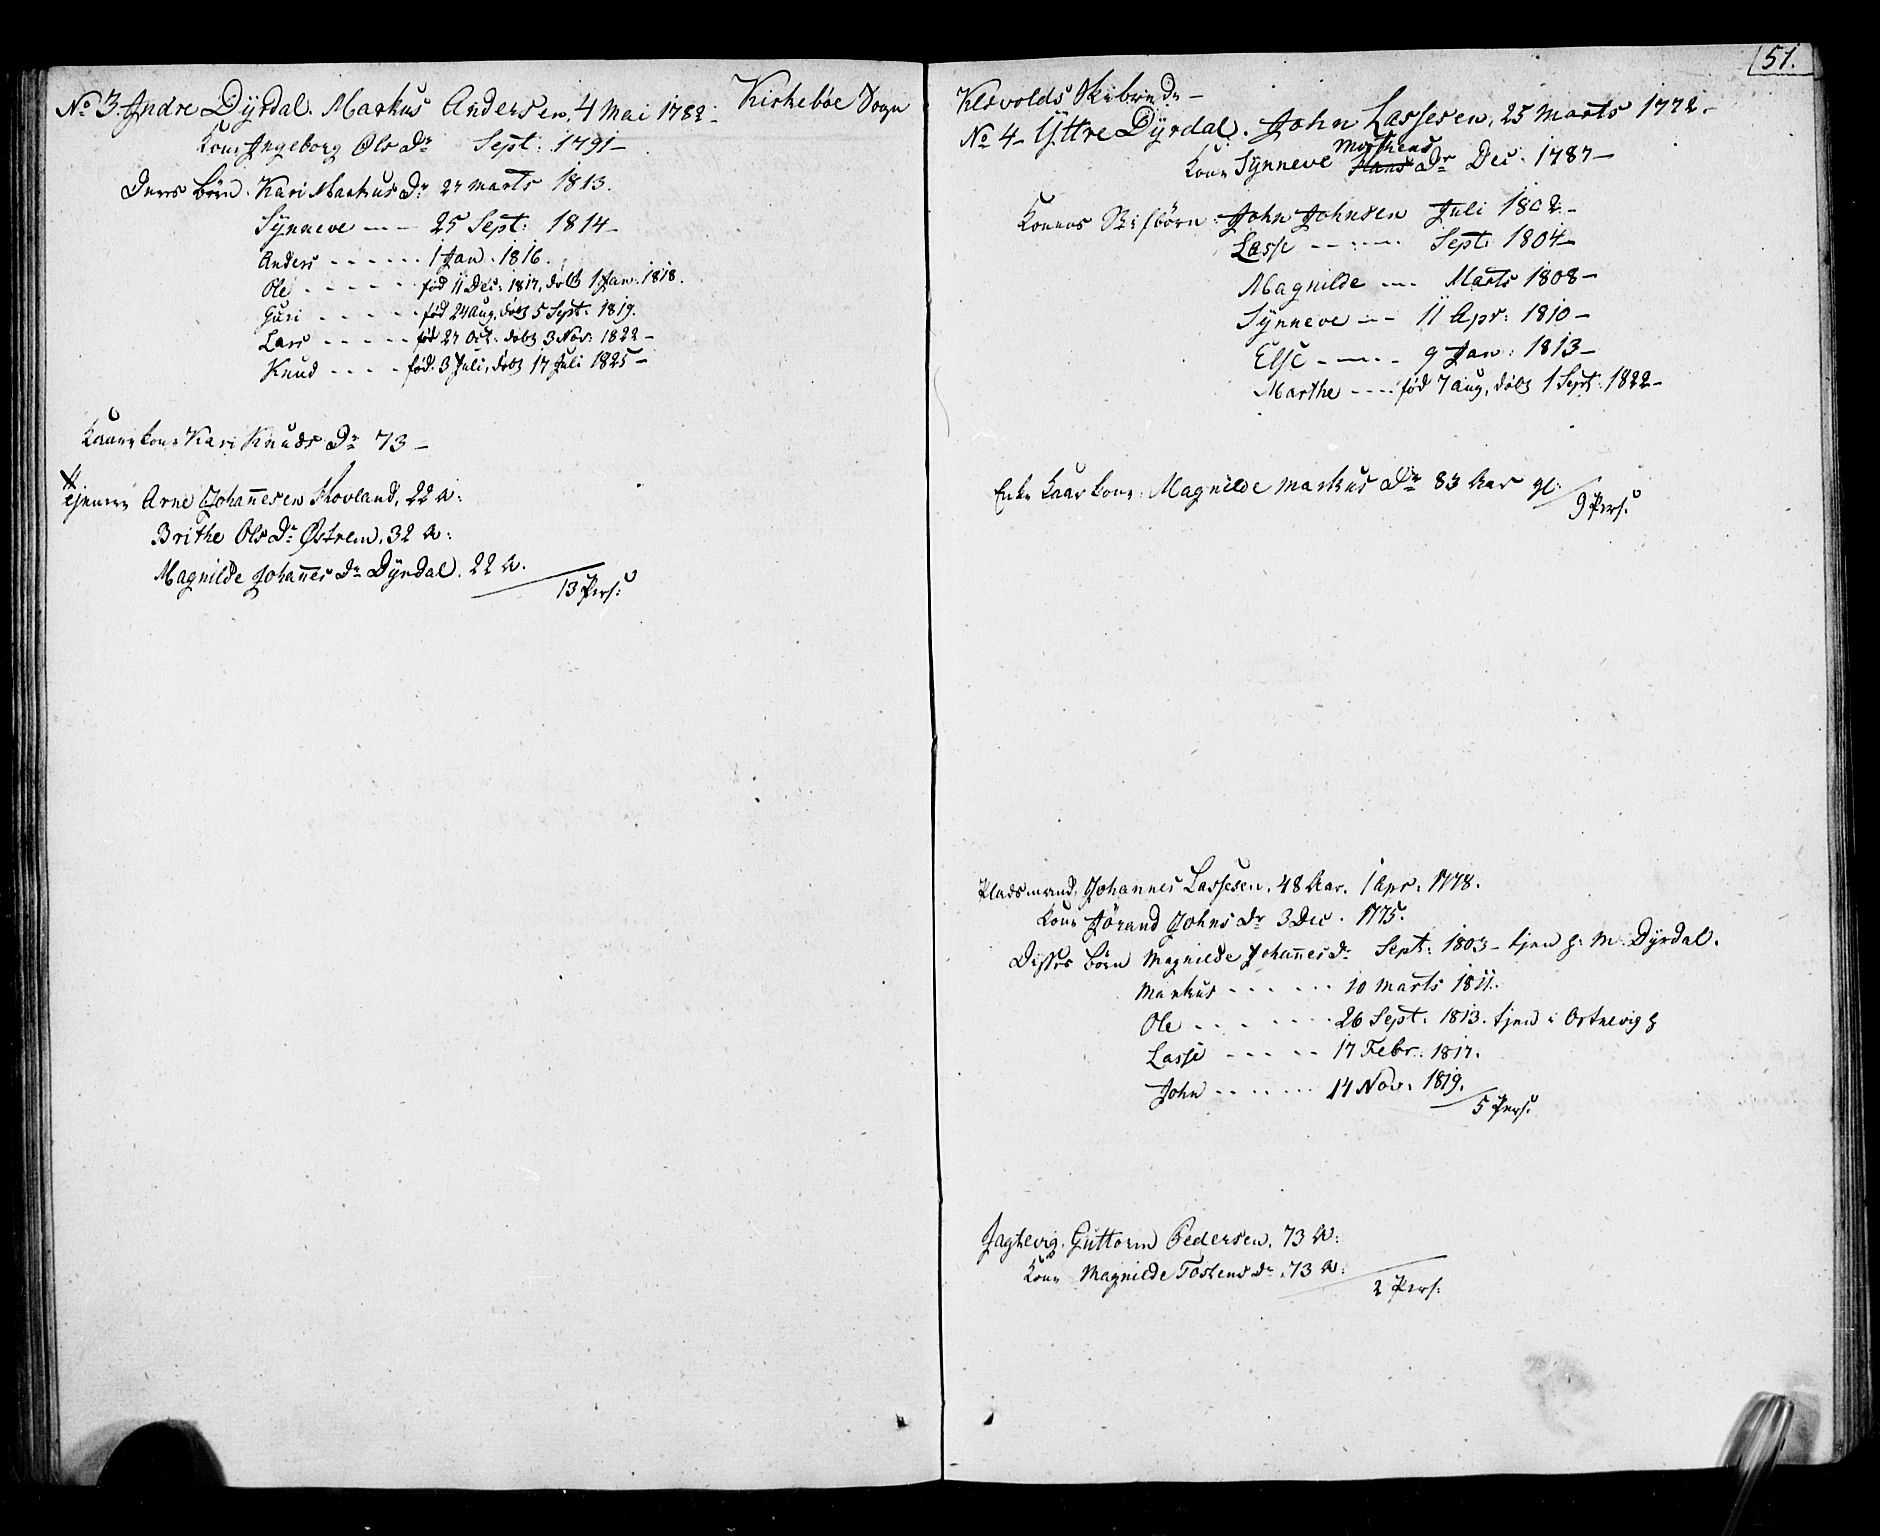 Kirkebøe Sogn
No 3 Indre Dÿrdal. Markus Andersen, 4 Mai 1782-
Kone Ingeborg Ols Dr Sept: 1791-
Deres Börn. Kari Markus Dr 27 Marts 1813.
Sÿnneve - - 25 Sept: 1814-
Anders - - - - - - 1 Jan. 1816.
Ole - - - - - - født 11 Dec: 1817, döbt 1 Jan: 1818.
Guri - - - - - fød 24 Aug. döbt 5 Sept. 1819.
Lars - - - - - fød 27 Oct. döbt 3 Nov: 1822-
Knud - - - - fød. 3 Juli, döbt 17 Juli 1825-
Kaarekone Kari Knuds Dr 73-
Tjenere Arne Johannesen Hovland, 22 A:
Brithe Ols Dr Østrem, 32 A:
Magnilde Johannes Dr Dÿrdal. 22 A.
13 Pers:
51.
Klævolds Skibrede-
No 4- Ÿttre Dÿrdal. John Lassesen, 25 Marts 1772-
Mothens
Kone Sÿnneve Hans Dr Dec. 1787-
Konens Stifbörn. John Johnsen Juli 1802-
Lasse - - - - - Sept: 1804-
Magnilde - - - Marts 1808-
Sÿnneve - - 11 Apr: 1810-
Else - - - - 9 Jan: 1813-
Marthe - - - - fød 7 Aug, döbt 1 Sept: 1822-
Enke Kaarkone. Magnilde Markus Dr 83 Aar gl:
9 Pers:
Pladsmand. Johannes Lassesen. 48 Aar. 1 Apr. 1778.
Kone Jörand Johns Dr 3 Dec. 1775.
Disses Börn Magnilde Johannes Dr Sept: 1803- tjen h: M. Dÿrdal.
Markus - - - - - - 10 Marts 1811.
Ole - - - - - - - 26 Sept. 1813. tjen i Ortnevig
Lasse - - - - - 17 Febr. 1817.
John - - - - - - - 14 Nov: 1819.
5 Pers:
Jagtevig. Guttorm Pedersen, 73 A:
Kone Magnilde Tostens Dr. 73 A:
2 Pers: